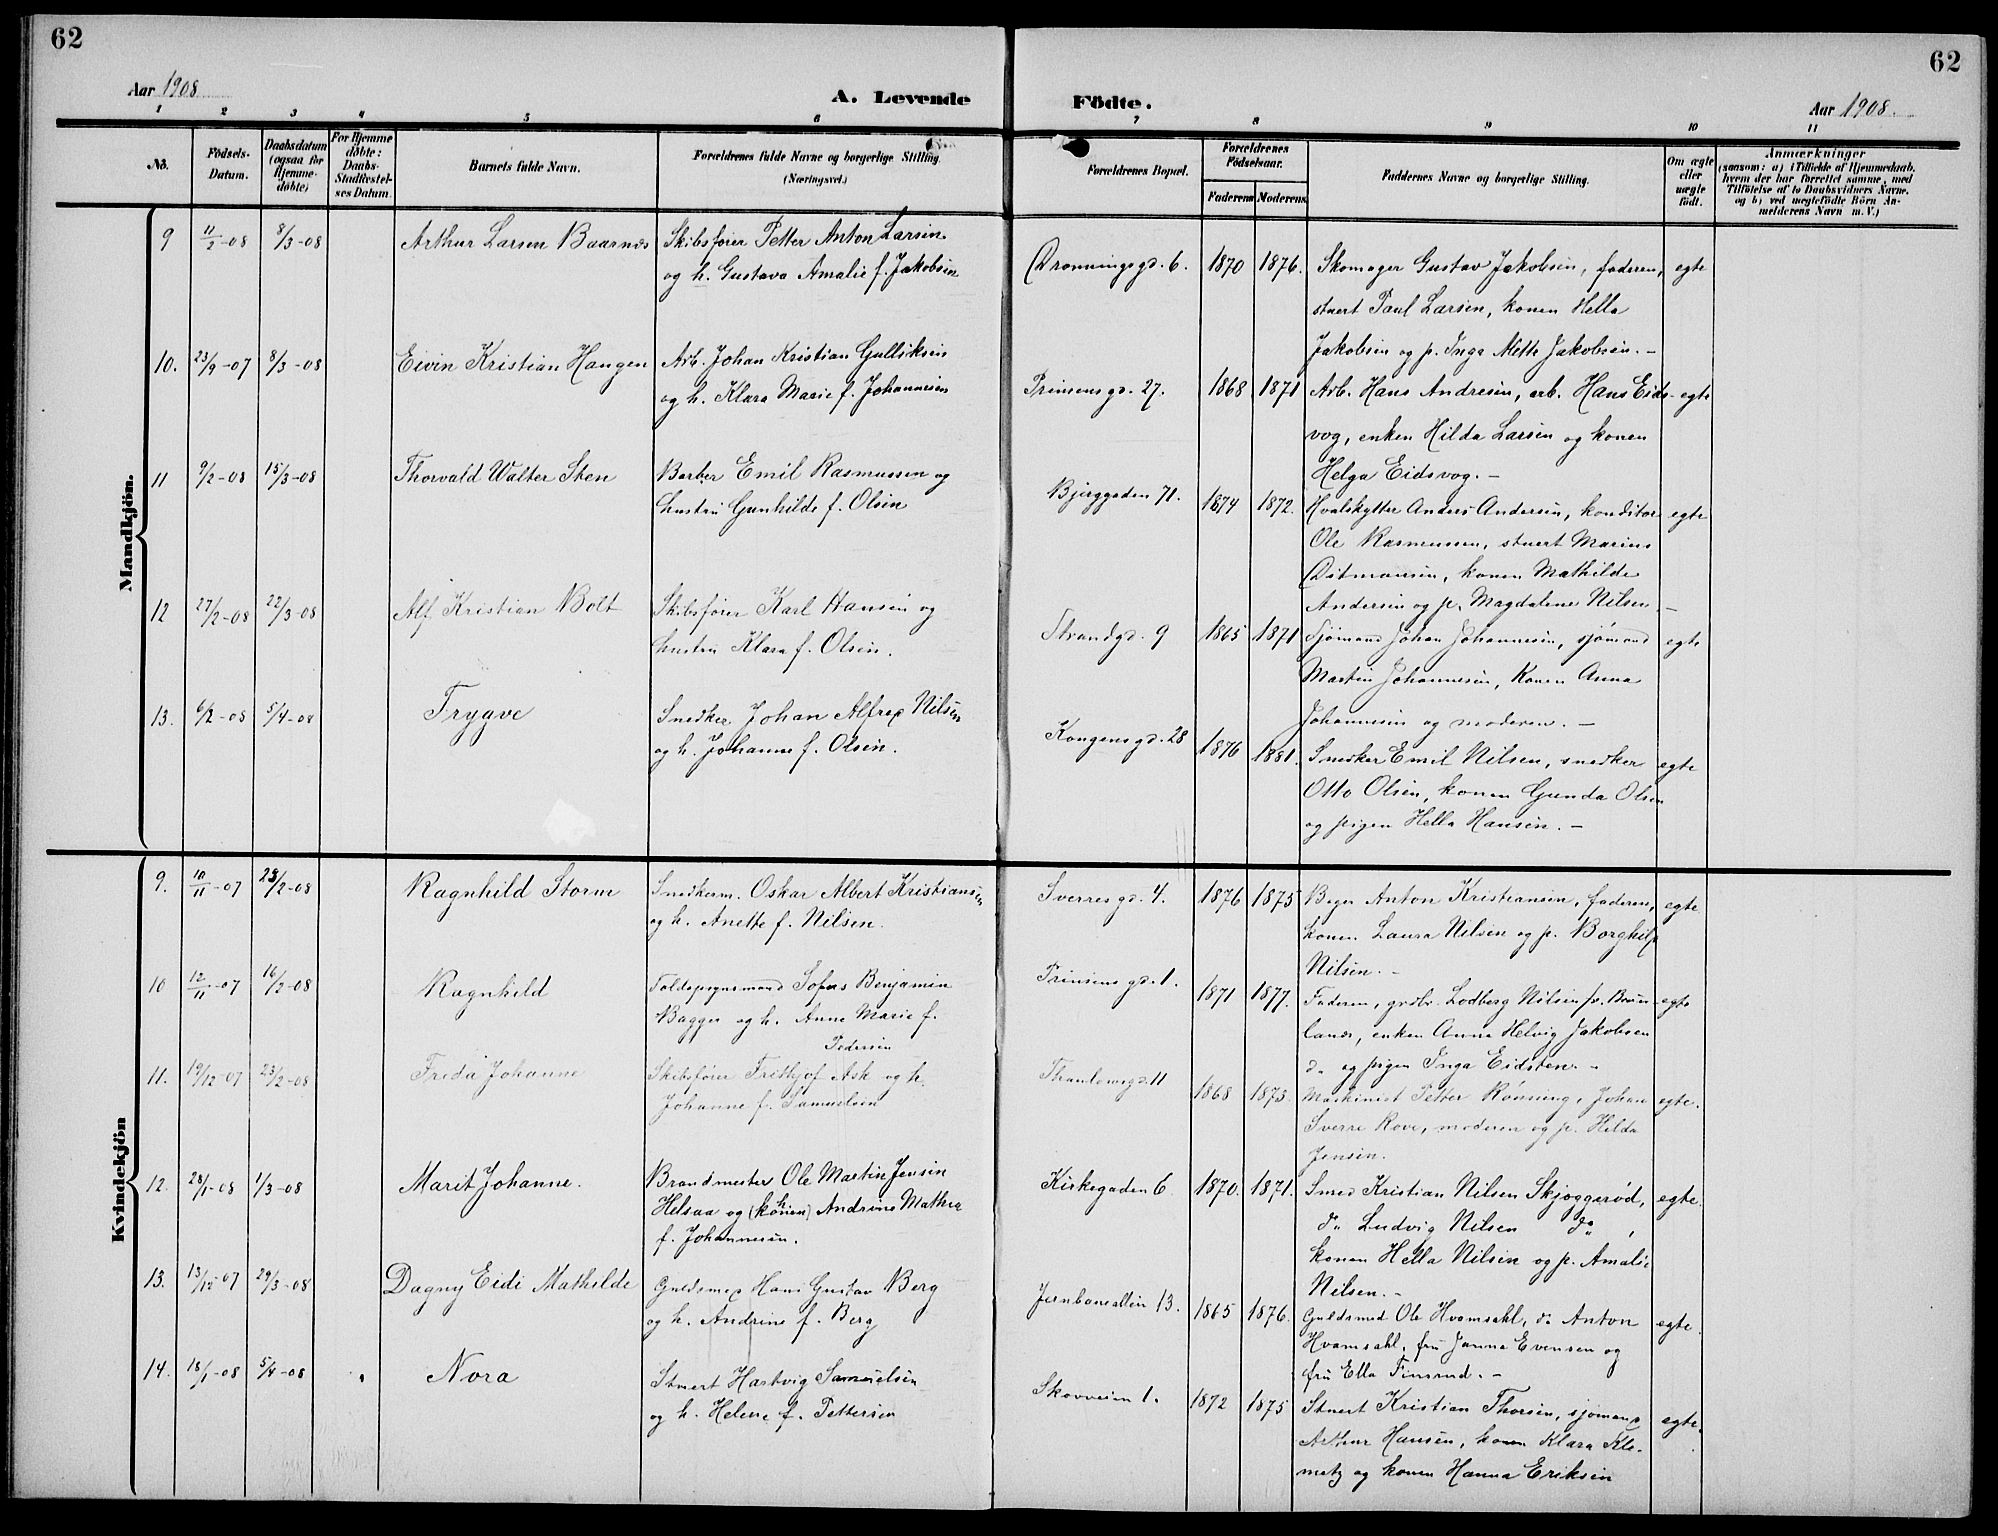 62
62
Aar 1908
A. Levende Födte.
Aar 1908.
1 2 3 4 5 6 7 8 9 10 11
No.
Födsels-Datum.
Daabsdatum (ogsaa for Hjemme-döbte)
For Hjemme döbte: Daabs-Stadfæstelses Datum.
Barnets fulde Navn.
Forældrenes fulde Navne og borgerlige Stilling. (Næringsvei.)
Forældrenes Bopæl.
Forældrenes Födselsaar.
Faderens Moderens
Faddernes Navne og borgerlige Stilling.
Om ægte eller uægte födt.
Anmærkninger
(saasom: a) i Tilfælde af Hjemmedaab, hvem der har forrettet samme, med Tilföielse af to Daabsvidners Navne. og b) ved uægtefödte Börn Anmelderens Navn m. V.)
Mandkjön.
9 11/2-08 8/3-08 Arthur Larsen Baarnes Skibsfører Petter Anton Larsen
og h. Gustava Amalie f. Jakobsen
Dronningsgd. 6. 1870 1876. Skomager Gustav Jakobsen, faderen, egte
stuert Paul Larsen, konen Hella
Jakobsen og p. Inga Mette Jakobsen. -
10. 23/9-07 8/3-08 Eivin Kristian Haugen Arb. Johan Kristian Gulliksen
og h. Klara Marie f. Johannesen
Prinsensgd. 27. 1868 1871 Arb. Hans Andresen, arb. Hans Eids- egte
vog, enken Hilda Larsen og konen
Helga Eidsvog. -
11 9/2-08 15/3-08 Thorvald Walter Sten Barber Emil Rasmussen og
hustru Gunhilde f. Olsen
Bjerggaden 71. 1874 1872. Hvalskytter Anders Andersen, konditor egte
Ole Rasmussen, stuert Marius
Ditmansen, konen Mathilde
Andersen og p. Magdalene Nilsen. -
12 27/2-08 22/3-08 Alf Kristian Bolt Skibsfører Karl Hansen og
hustru Klara f. Olsen.
Strandgd. 9 1865 1871 Sjømand Johan Johannesen, sjømand egte
Martin Johannesen, Konen Anna
Johannesen og moderen. -
13. 6/2-08 5/4-08 Trygve Snedker Johan Alfred Nilsen
og h. Johanne f. Olsen.
Kongensgd. 28 1876 1881. Snedker Emil Nilsen, snedker egte
Otto Olsen, konen Gunda Olsen
og pigen Hella Hansen. -
Kvindekjön
9. 10/11-07 23/2-08 Ragnhild Storm Snedkerm. Oskar Albert Kristiansen
og h. Anette f. Nilsen.
Sverresgd. 4. 1876 1875 Bager Anton Kristiansen, faderen, egte
konen Laura Nilsen og p. Borghild
Nilsen. -
10 12/11-07 16/2-08 Ragnhild Toldopsynsmand Sofus Benjamin
Bagger og h. Anne Marie f.
Pedersen
Prinsensgd. 1. 1871 1877. Faderen, grdbr. Lodberg Nilsen egte
enken Anna Helvig Jakobsen
do og pigen Inga Eidsten. -
11. 19/12-07 23/2-08 Freda Johanne Skibsfører Frithjof Ask og h.
Johanne f. Samuelsen
Thaulowsgd. 11 1868 1875. Maskinist Petter Rønning, Johan egte.
Sverre Rove, moderen og p. Hilda
Jensen.
12. 28/1-08 1/3-08 Marit Johanne. Brandmester Ole Martin Jensen
Helsaa og (konen) h Andrine Mathea
f. Johannesen.
Kirkegaden 6 1870. 1871. Smed Kristian Nilsen Skjoggerød, egte.
do Ludvig Nilsen do,
konen Hella Nilsen og p. Amalie
Nilsen. -
13. 13/12-07 29/3-08 Dagny Eidi Mathilde Guldsmed Hans Gustav Berg
og h. Andrine f. Berg
Jernbanealleen 13. 1865 1876. Guldsmed Ole Hvamsahl, do Anton egte.
Hvamsahl, fru Janna Evensen og
fru Ella Finsrud. -
14. 18/1-08 5/4-08 Nora Stuert Hartvig Samuelsen
og h. Helene f. Pettersen
Skovveien 1. 1872 1875 Stuert Kristian Thorsen, sjømand egte.
Arthur Hansen, konen Klara Kle-
metz og konen Hanna Eriksen